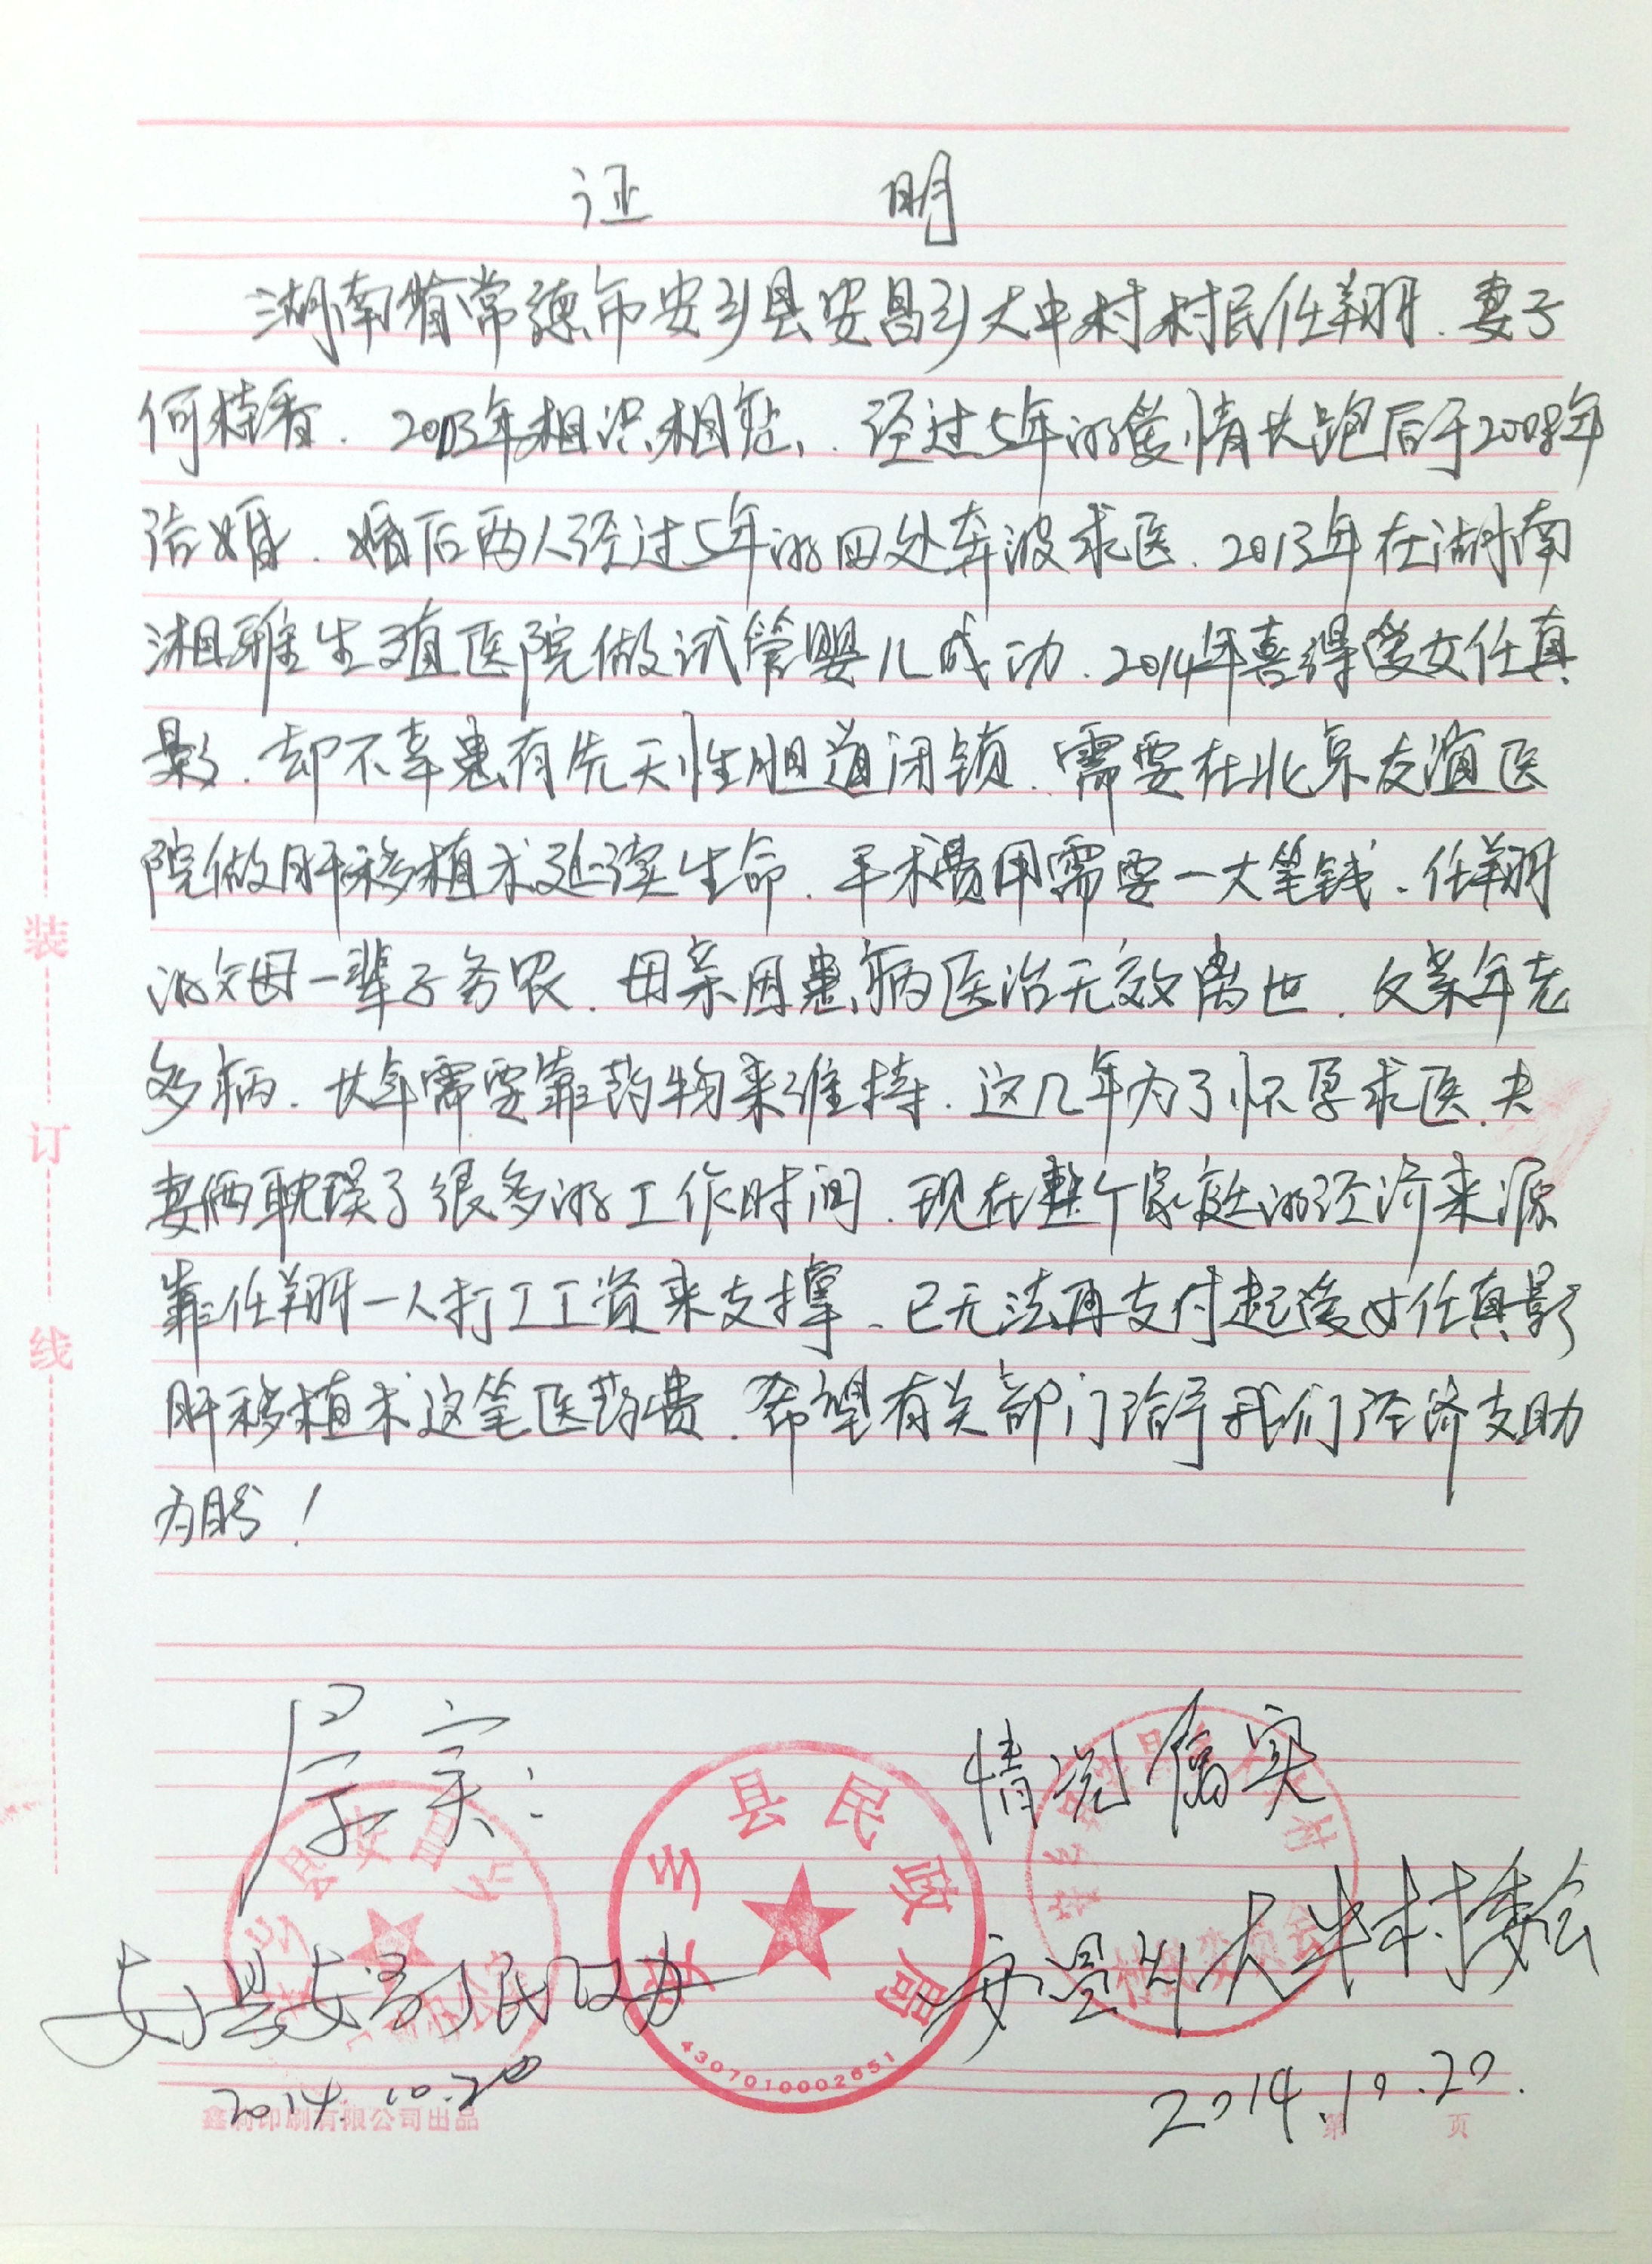 证 明
湖南省常德市安乡县安昌乡大中村村民任翔.妻子
何桂香.2003年相识相恋,.经过5年的爱情长跑后于2008年
结婚.婚后两人经过5年的四处奔波求医.2013年在湖南
湘雅生殖医院做试管婴儿成功.2014年喜得爱女任真
影.却不幸患有先天性胆道闭锁.需要在北京友谊医
院做肝移植术延续生命.手术费用需要一大笔钱.任翔
的父母一辈子务农.母亲因患病医治无效离世.父亲年老
多病.长年需要靠药物来维持.这几年为了怀孕求医.夫
妻俩耽误了很多的工作时间.现在整个家庭的经济来源
靠任翔一人打工工资来支撑.已无法再支付起爱女任真影
肝移植术这笔医药费.希望有关部门给予我们经济支助
为盼!
装
订
线
属实:
情况属实
安乡县民政局
4307010002651
安乡县安昌乡民政办
安昌乡大中村村委会
2014.10.20
2014.10.20.
鑫利印刷有限公司出品
第 页